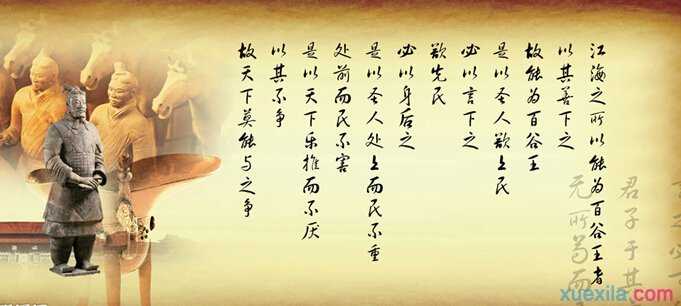 江海之所以能为百谷王者
以其善下之
故能为百谷王
是以圣人欲上民
必以言下之
欲先民
必以身后之
是以圣人处上而民不重
处前而民不害
是以天下乐推而不厌
以其不争
故天下莫能与之争
君子于其
无所苟而
xuexila.com